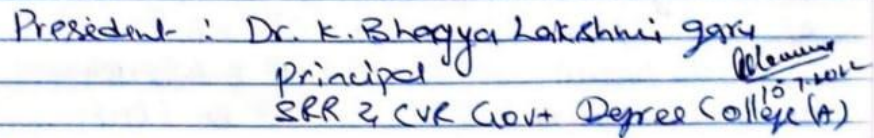 President : Dr. K. Bhagya Lakshmi garu
Principal
SRR & CVR Govt Degree College (A)